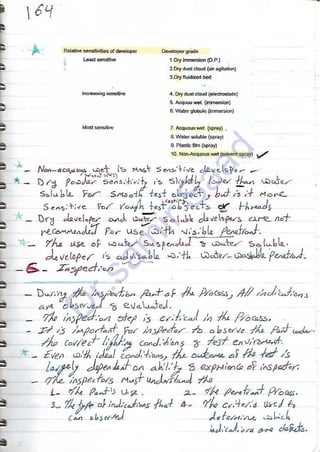 164
Relative sensitivities of developer Developer grade
Least sensitive 1 Dry immersion (D.P.)
2.Dry dust cloud (air agitation)
3.Dry fluidized bed
Increasing sensitive 4. Dry dust cloud (electrostatic)
5. Acquou wet (immersion)
6. Water globule (immersion)
Most sensitive 7. Acquous wet (spray)
8. Water soluble (spray)
9. Plastic film (spray)
10. Non-Acquous wet (solvent spray) ✓
- Non-acquous wet is Most Sensitive developer -
- Dry Powder Sensitivity is Slightly lower than Water
Soluble For Smooth test object, but it is More
Sensitive For rough test objects or threads
- Dry developer and water Soluble developers are not
recommended For use with visible Penetrant.
- The use of water Suspended & water Soluble
developer is advisable with Water-Washable Penetrant.
- 6- Inspection
- During the inspection Part of the Process, All indications
are observed & evaluated.
The inspection step is critical in the Process.
- It is important For inspector to observe the Part under
the correct lighting conditions & Test enviroment.
- Even with ideal Conditions, the outcome of the test is
largely dependent on ability & exprience of inspector.
- The inspectors Must understand the
1- The Part's use. 2- The Penetrant Process.
3- The type of indications that 4- The Criteria used to
Can observed determine which
indications are defects.